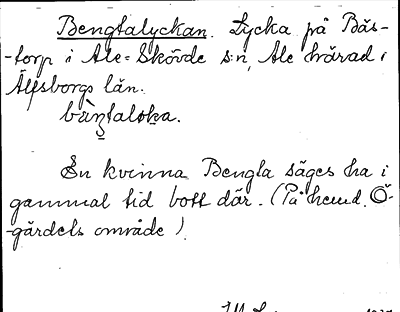 Bengtalyckan. Lycka på Bås-
-torp i Ale-Skövde s:n, Ale härad i
Älfsborgs län.
En kvinna Bengta säges ha i
gammal tid bott där. (På hemd. Ö-
-gärdets område).